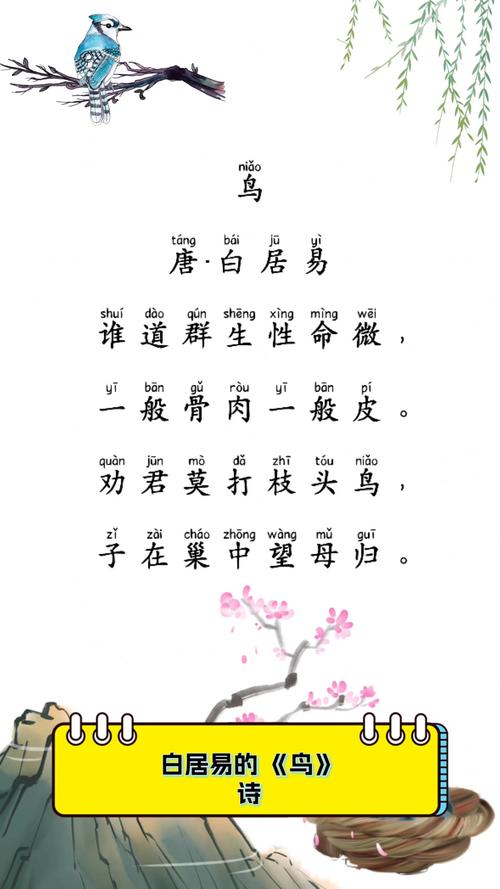 niǎo
鸟
táng bái jū yì
唐·白居易
shuí dào qún shēng xìng mìng wēi
谁道群生性命微，
yī bān gǔ ròu yī bān pí
一般骨肉一般皮。
quàn jūn mò dǎ zhī tóu niǎo
劝君莫打枝头鸟，
zǐ zài cháo zhōng wàng mǔ guī
子在巢中望母归。
白居易的《鸟》
诗